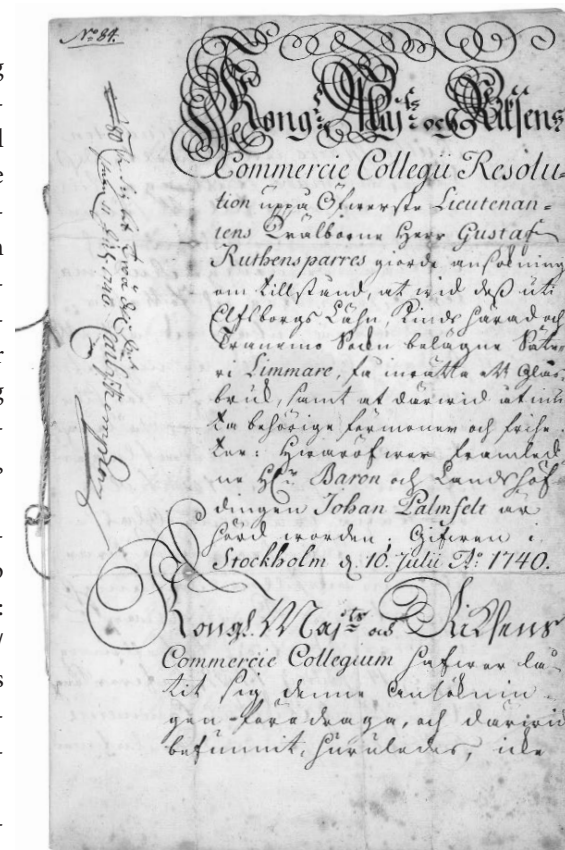 No 84.
Kongl. Maj:ts och Riksens
Commercie Collegii Resolu-
tion uppå Öfwerste Lieutenan-
tens Wälborne Herr Gustaf
Ruthensparres giorde ansökning
om tillstånd, at wid deß uti
Elfsborgs Lähn, Kinds härad och
Tranemo Sokn belägne Säte-
ri Limmare, få inrätta ett Glas-
bruk, samt at därwid åtniu-
ta behörige förmoner och frihe-
ter: Hwaröfwer framled-
ne H:r Baron och Landshöf-
dingen Johan Palmfelt är
hörd worden. Gifwen i
Stockholm d. 10. Julii A:o 1740.
Kongl. Maj:ts och Riksens
Commercie Collegium hafwer lå-
tit sig denne ansöknin-
gen föredraga, och därwid
befunnit, huruledes, icke